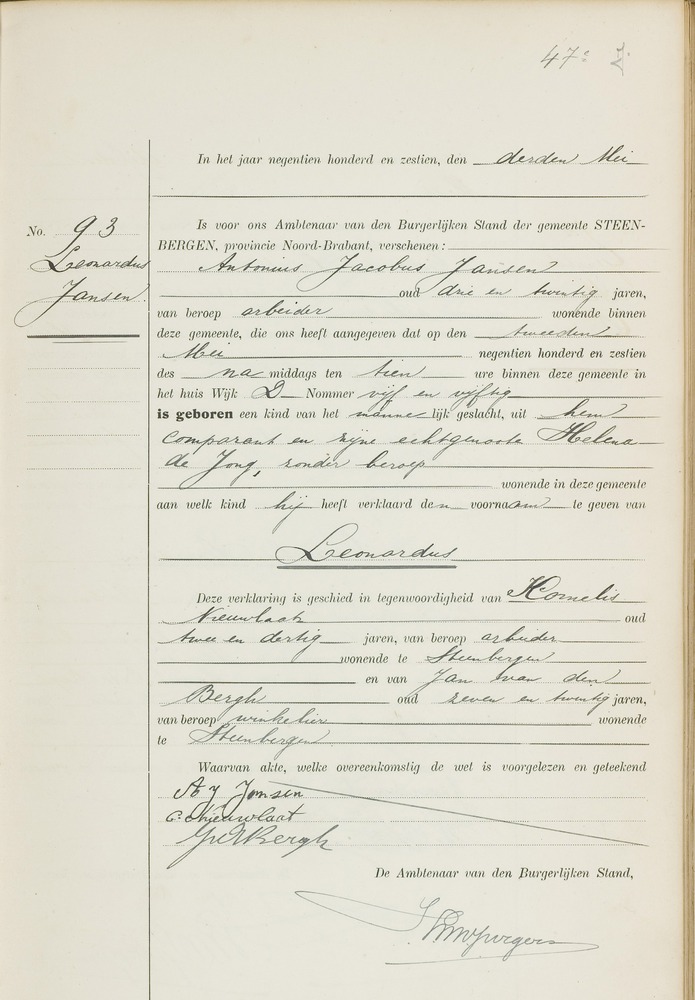 47e
In het jaar negentien honderd en zestien, den derden Mei
No. 93
Leonardus
Jansen.
Is voor ons Ambtenaar van den Burgerlijken Stand der gemeente STEEN-
BERGEN, provincie Noord-Brabant, verschenen:
Antonius Jacobus Jansen
oud drie en twintig jaren,
van beroep arbeider wonende binnen
deze gemeente, die ons heeft aangegeven dat op den tweeden
Mei negentien honderd en zestien
des na middags ten tien ure binnen deze gemeente in
het huis Wijk D Nommer vijf en vijftig
is geboren een kind van het mannelijk geslacht, uit hem
comparant en zijne echtgenoote Helena
de Jong, zonder beroep
wonende in deze gemeente
aan welk kind hij heeft verklaard den voornaam te geven van
Leonardus
Deze verklaring is geschied in tegenwoordigheid van Kornelis
Nieuwlaat oud
twee en dertig jaren, van beroep arbeider
wonende te Steenbergen
en van Jan van den
Bergh oud zeven en twintig jaren,
van beroep winkelier wonende
te Steenbergen
Waarvan akte, welke overeenkomstig de wet is voorgelezen en geteekend
A J Jansen
C. Nieuwlaat
Bergh
De Ambtenaar van den Burgerlijken Stand,